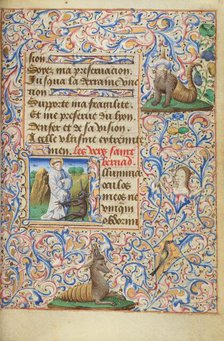 sion.
Soye ma preseruacion.
Jusqua la derraine vnc
tion
Supporte ma fragilite
Et me preserue du lyon.
Denfer et de sa vision.
A celle vltisme extremite
men. Les vers saint
bernad.
Illumina
oculos
meos ne
vmqm
obdormi